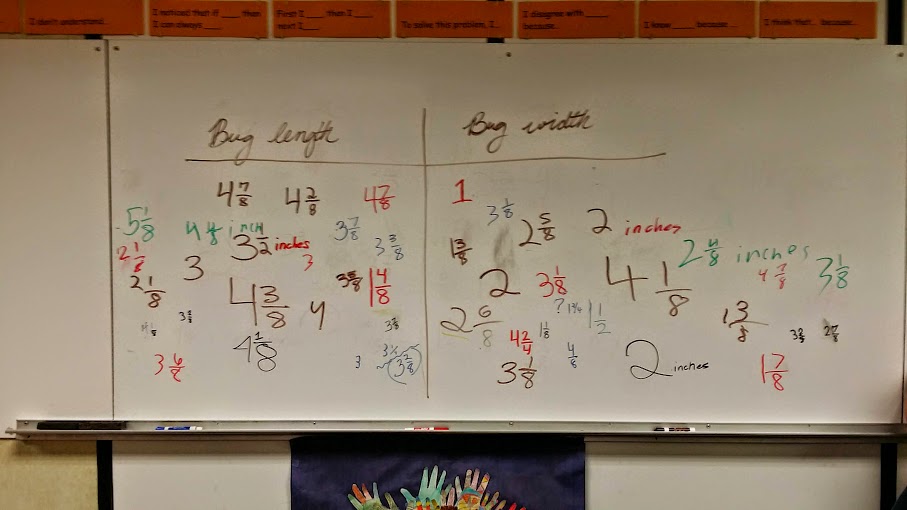 I don't understand...
I noticed that if ___ then
I can always ___.
First I ___, then I ___,
next I ___.
To solve this problem, I...
I disagree with ___
because...
I know ___ because...
I think that... because...
Bug length
Bug width
4 7/8
4 2/8
4 7/8
5 1/8
4 4/8 inch
3 1/2 inches
3 7/8
3 3/8
2 1/8
3
3
2 1/8
4 3/8
4
1 4/8
4 1/8
3 6/8
3
3 2/8
1
3 1/8
2 5/8
2 inches
1 3/8
2 4/8 inches
4 7/8
3 1/8
2
3 1/8
4 1/8
2 6/8
?
1 1/2
1 3/8
4 2/4
1 1/8
4/8
2 7/8
3 1/8
2 inches
1 7/8